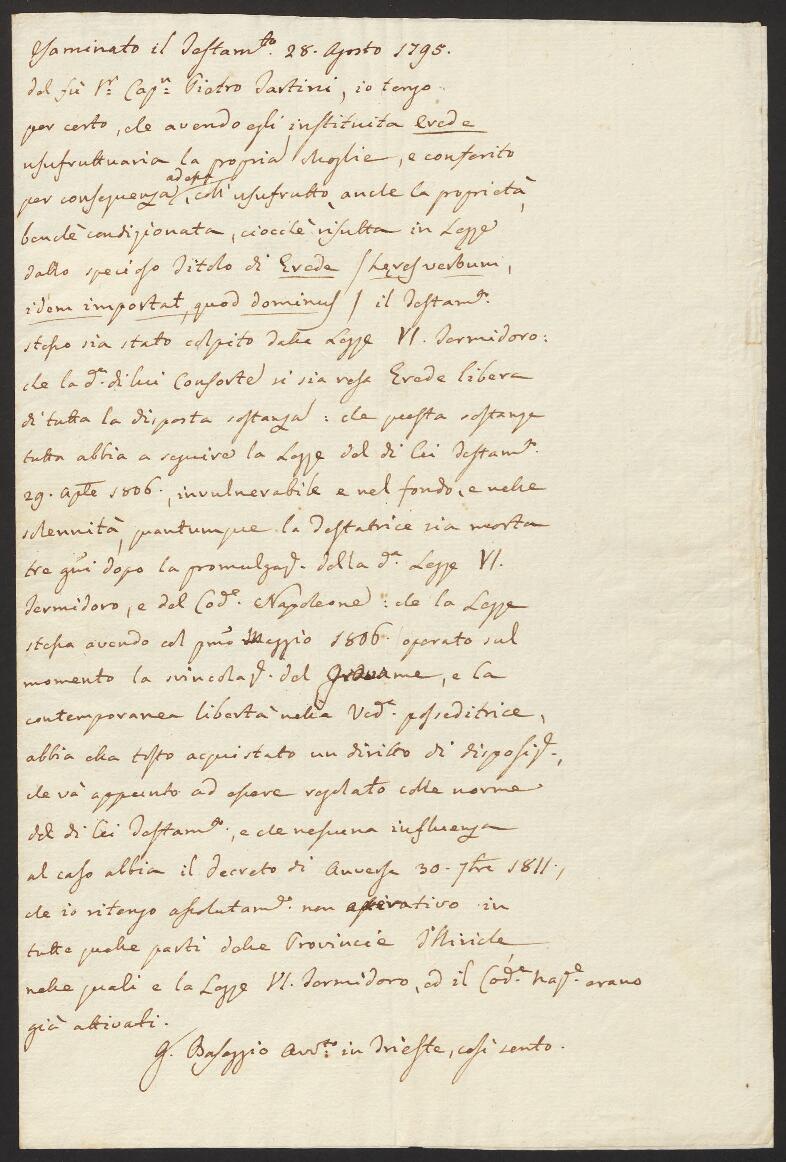 Esaminato il Testam.to 28. Agosto 1795.
del fù Sr. Cap.n Pietro Tartini, io tengo
per certo, che avendo egli instituita Erede
usufruttuaria la propria Moglie, e conferito
per conseguenza ad essa, coll'usufrutto, anche la proprietà,
benchè condizionata, ciocchè risulta in Legge
dallo specioso Titolo di Erede / heres verbum,
idem importat, quod dominus / il Testam.to
stesso sia stato colpito dalla Legge VI. Termidoro:
che la d.a di lui Consorte si sia resa Erede libera
di tutta la disposta sostanza: che questa sostanza
tutta abbia a seguire la Legge del di lei Testam.to
29. Aple 1806., invulnerabile e nel fondo, e nelle
solennità, quantunque la Testatrice sia morta
tre gni dopo la promulgaz.e della d.a Legge VI.
Termidoro, e del Cod.e Napoleone: che la Legge
stessa avendo col pmo Maggio 1806. operato sul
momento la svincolaz.e del gravame, e la
contemporanea libertà nella Ved.a posseditrice,
abbia essa tosto acquistato un diritto di disposiz.e,
che và appunto ad essere regolato colle norme
del di lei Testam.to, e che nessuna influenza
al caso abbia il Decreto di Anversa 30. 7bre 1811.,
che io ritengo assolutam.e non operativo in
tutte quelle parti delle Provincie d'Illiriche
nelle quali e la Legge VI. Termidoro, ed il Cod.e Nap.e erano
già attivati.
G. Baseggio Avv.to in Trieste, così sento.